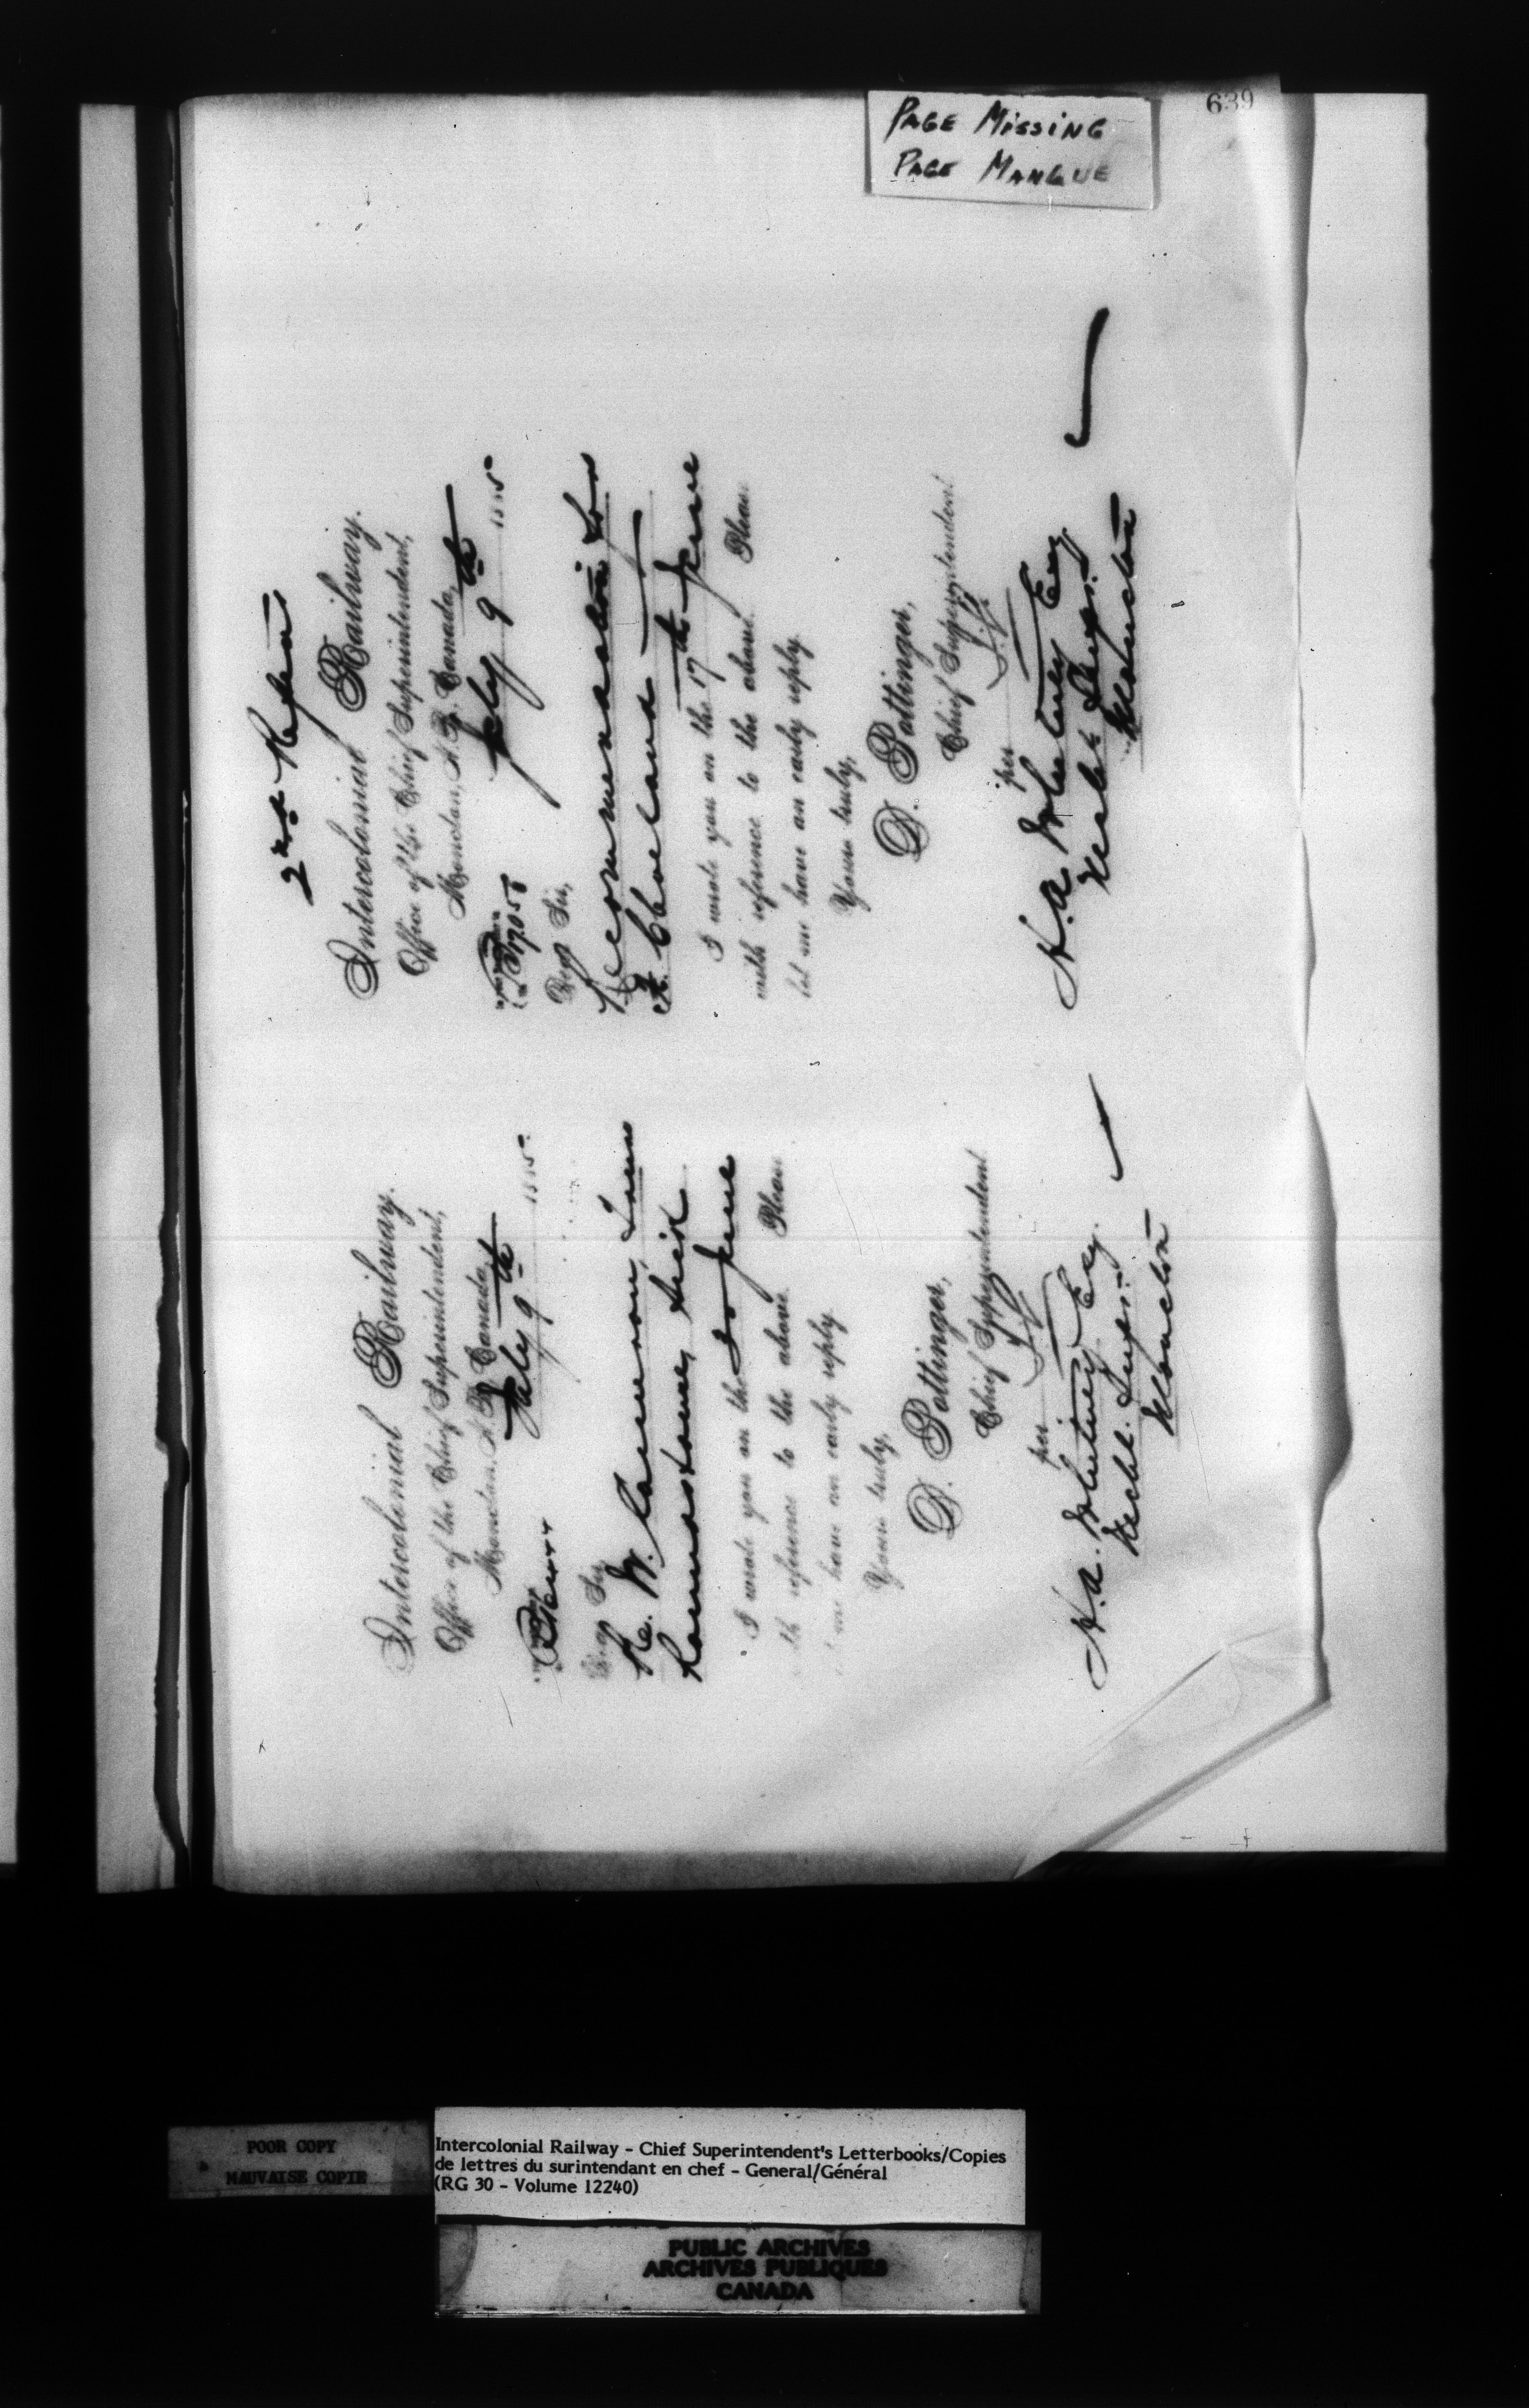 639
PAGE MISSING
PAGE MANQUE
Intercolonial Railway.
Office of the Chief Superintendent,
Moncton, N. B. Canada,
July 9th 1885
Dear Sir,
Re W. Cameron,
I wrote you on the 20 June
with reference to the above. Please
let me have an early reply
Yours truly,
D. Pottinger,
Chief Superintendent
per
H. A. Whitney Esq.
Mechl. Supt.
Moncton
2nd
Intercolonial Railway.
Office of the Chief Superintendent,
Moncton, N. B. Canada,
July 9th 1885
Dear Sir,
Recommendation for
I wrote you on the 17th June
with reference to the above. Please
let me have an early reply
Yours truly,
D. Pottinger,
Chief Superintendent
per
H. A. Whitney Esq
Mechl. Supt.
Moncton
POOR COPY
MAUVAISE COPIE
Intercolonial Railway - Chief Superintendent's Letterbooks/Copies
de lettres du surintendant en chef - General/Général
(RG 30 - Volume 12240)
PUBLIC ARCHIVES
ARCHIVES PUBLIQUES
CANADA